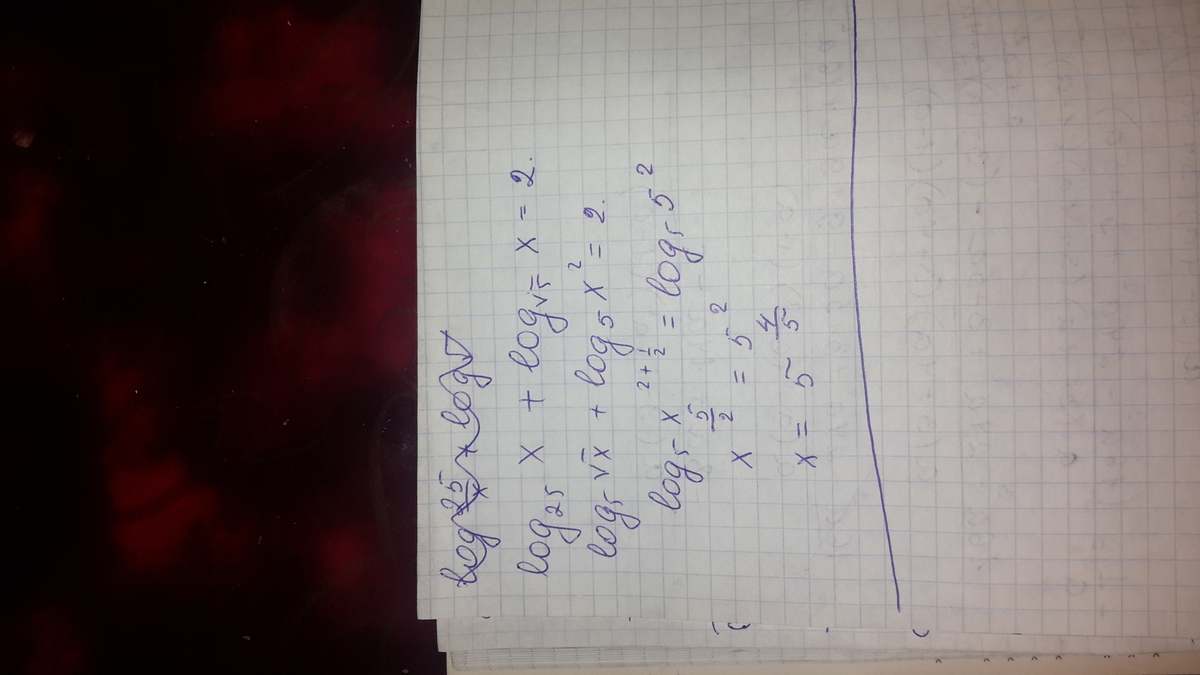 log₂₅ x + log_√5 x = 2.
log₅ √x + log₅ x² = 2.
log₅ x^(2+1/2) = log₅ 5²
x^(5/2) = 5²
x = 5^(4/5)